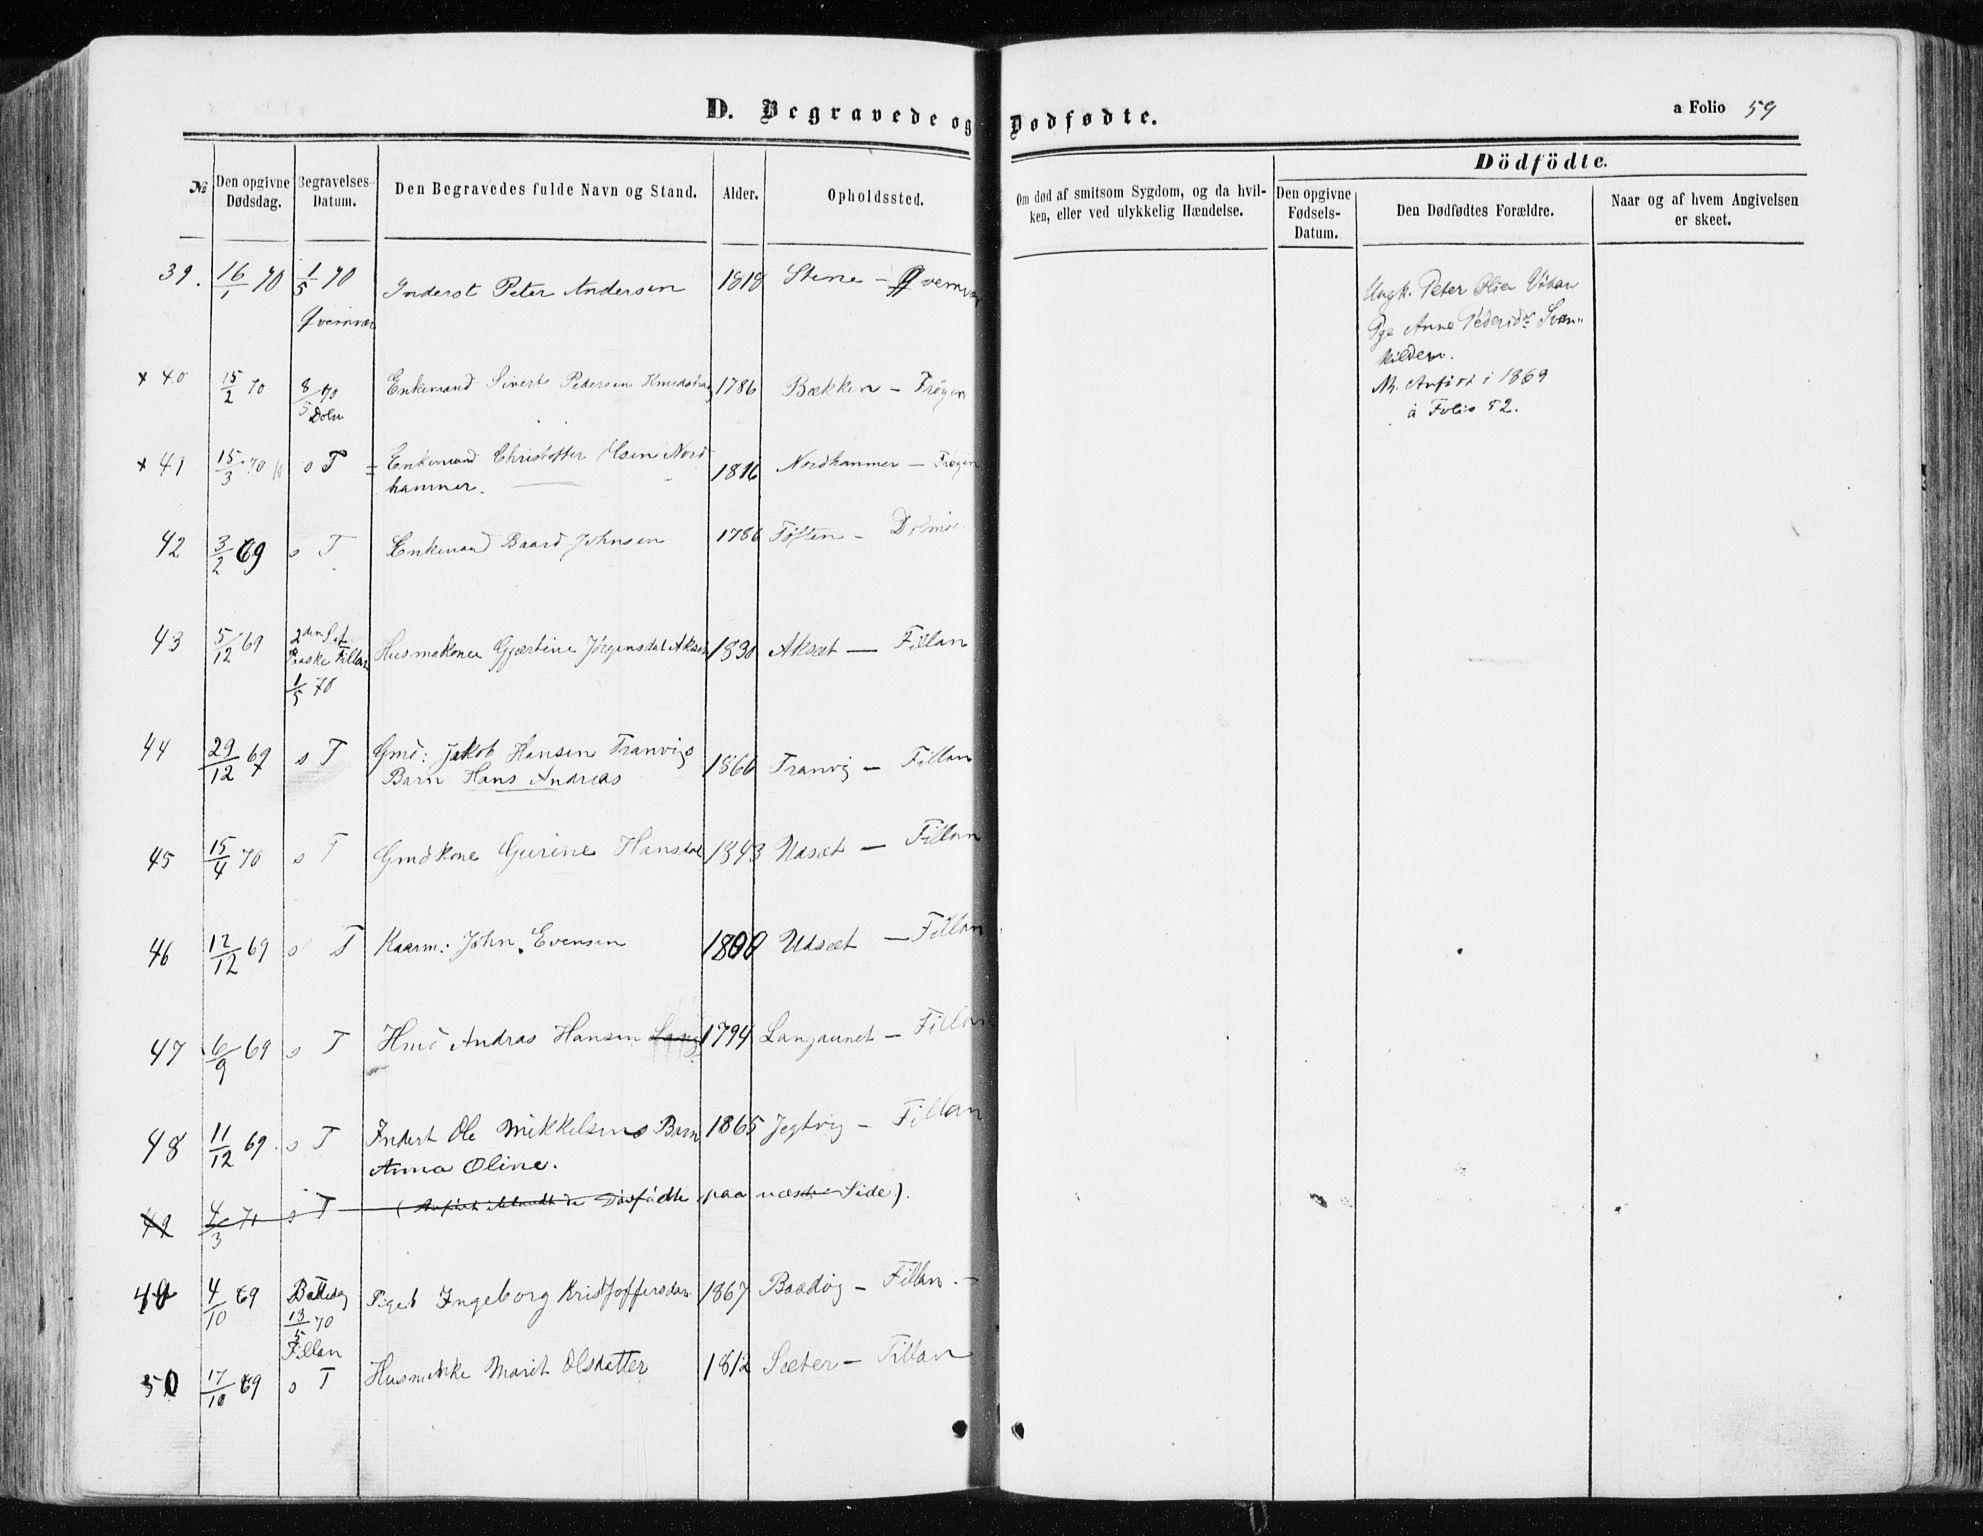 D. Begravede og Dødfødte.
a Folio 59
Dödfödte.
№ Den opgivne Dødsdag. Begravelses-Datum. Den Begravedes fulde Navn og Stand. Alder. Opholdssted. Om død af smitsom Sygdom, og da hvilken, eller ved ulykkelig Hændelse. Den opgivne Fødsels-Datum. Den Dødfødtes Forældre. Naar og af hvem Angivelsen er skeet.
39. 16/1 70 1/5 70 Inderst Peter Andersen 1818 Stene — Qvenvær
Qvenvær
Ungk. Peter Olsen
Pge Anne Pedersdr
Anført i 1869
å Folio 52.
+ 40 15/2 70 8/5 70 Enkemand Sivert Pedersen 1786 Bækken — Frøyen
Dolm
+ 41 15/3 70 s T Enkemand Christoffer Olsen Nord 1816 Nordhammer — Frøyen
hammer.
42 3/2 69 s T Enkemand Baard Johnsen 1786 Tøften — Dolmø
43 5/12 69 2den Paaske Fillan Husmakone Gjertine Jørgensdat Akset 1830 Aksæt — Fillan
1/5 70
44 29/12 69 s T Gmd: Jakob Hansen Tranvigs 1866 Tranvig — Fillan
Barn Hans Andreas
45 15/4 70 s T Gmdkone Gurine Hansdat 1843 Udsæt — Fillan
46 12/12 69 s T Kaarm: John Evensen 1800 Udsæt — Fillan
47 6/9 69 s T Hmd Andras Hansen Lang 1794 Langaunet — Fillan
48 11/12 69 s T Inderst Ole Mikkelsens Barn 1865 Jegtvig — Fillan
Anna Oline.
49 4/3 71 s T (Anført iblandt de Dødfødte paa næste Side).
49 4/10 69 Bededag Pigeb Ingeborg Kristoffersdat 1867 Baadvig — Fillan.
13/5 70
Fillan
50 17/10 69 s T Husmenke Marit Olsdatter 1812 Sæter — Fillan